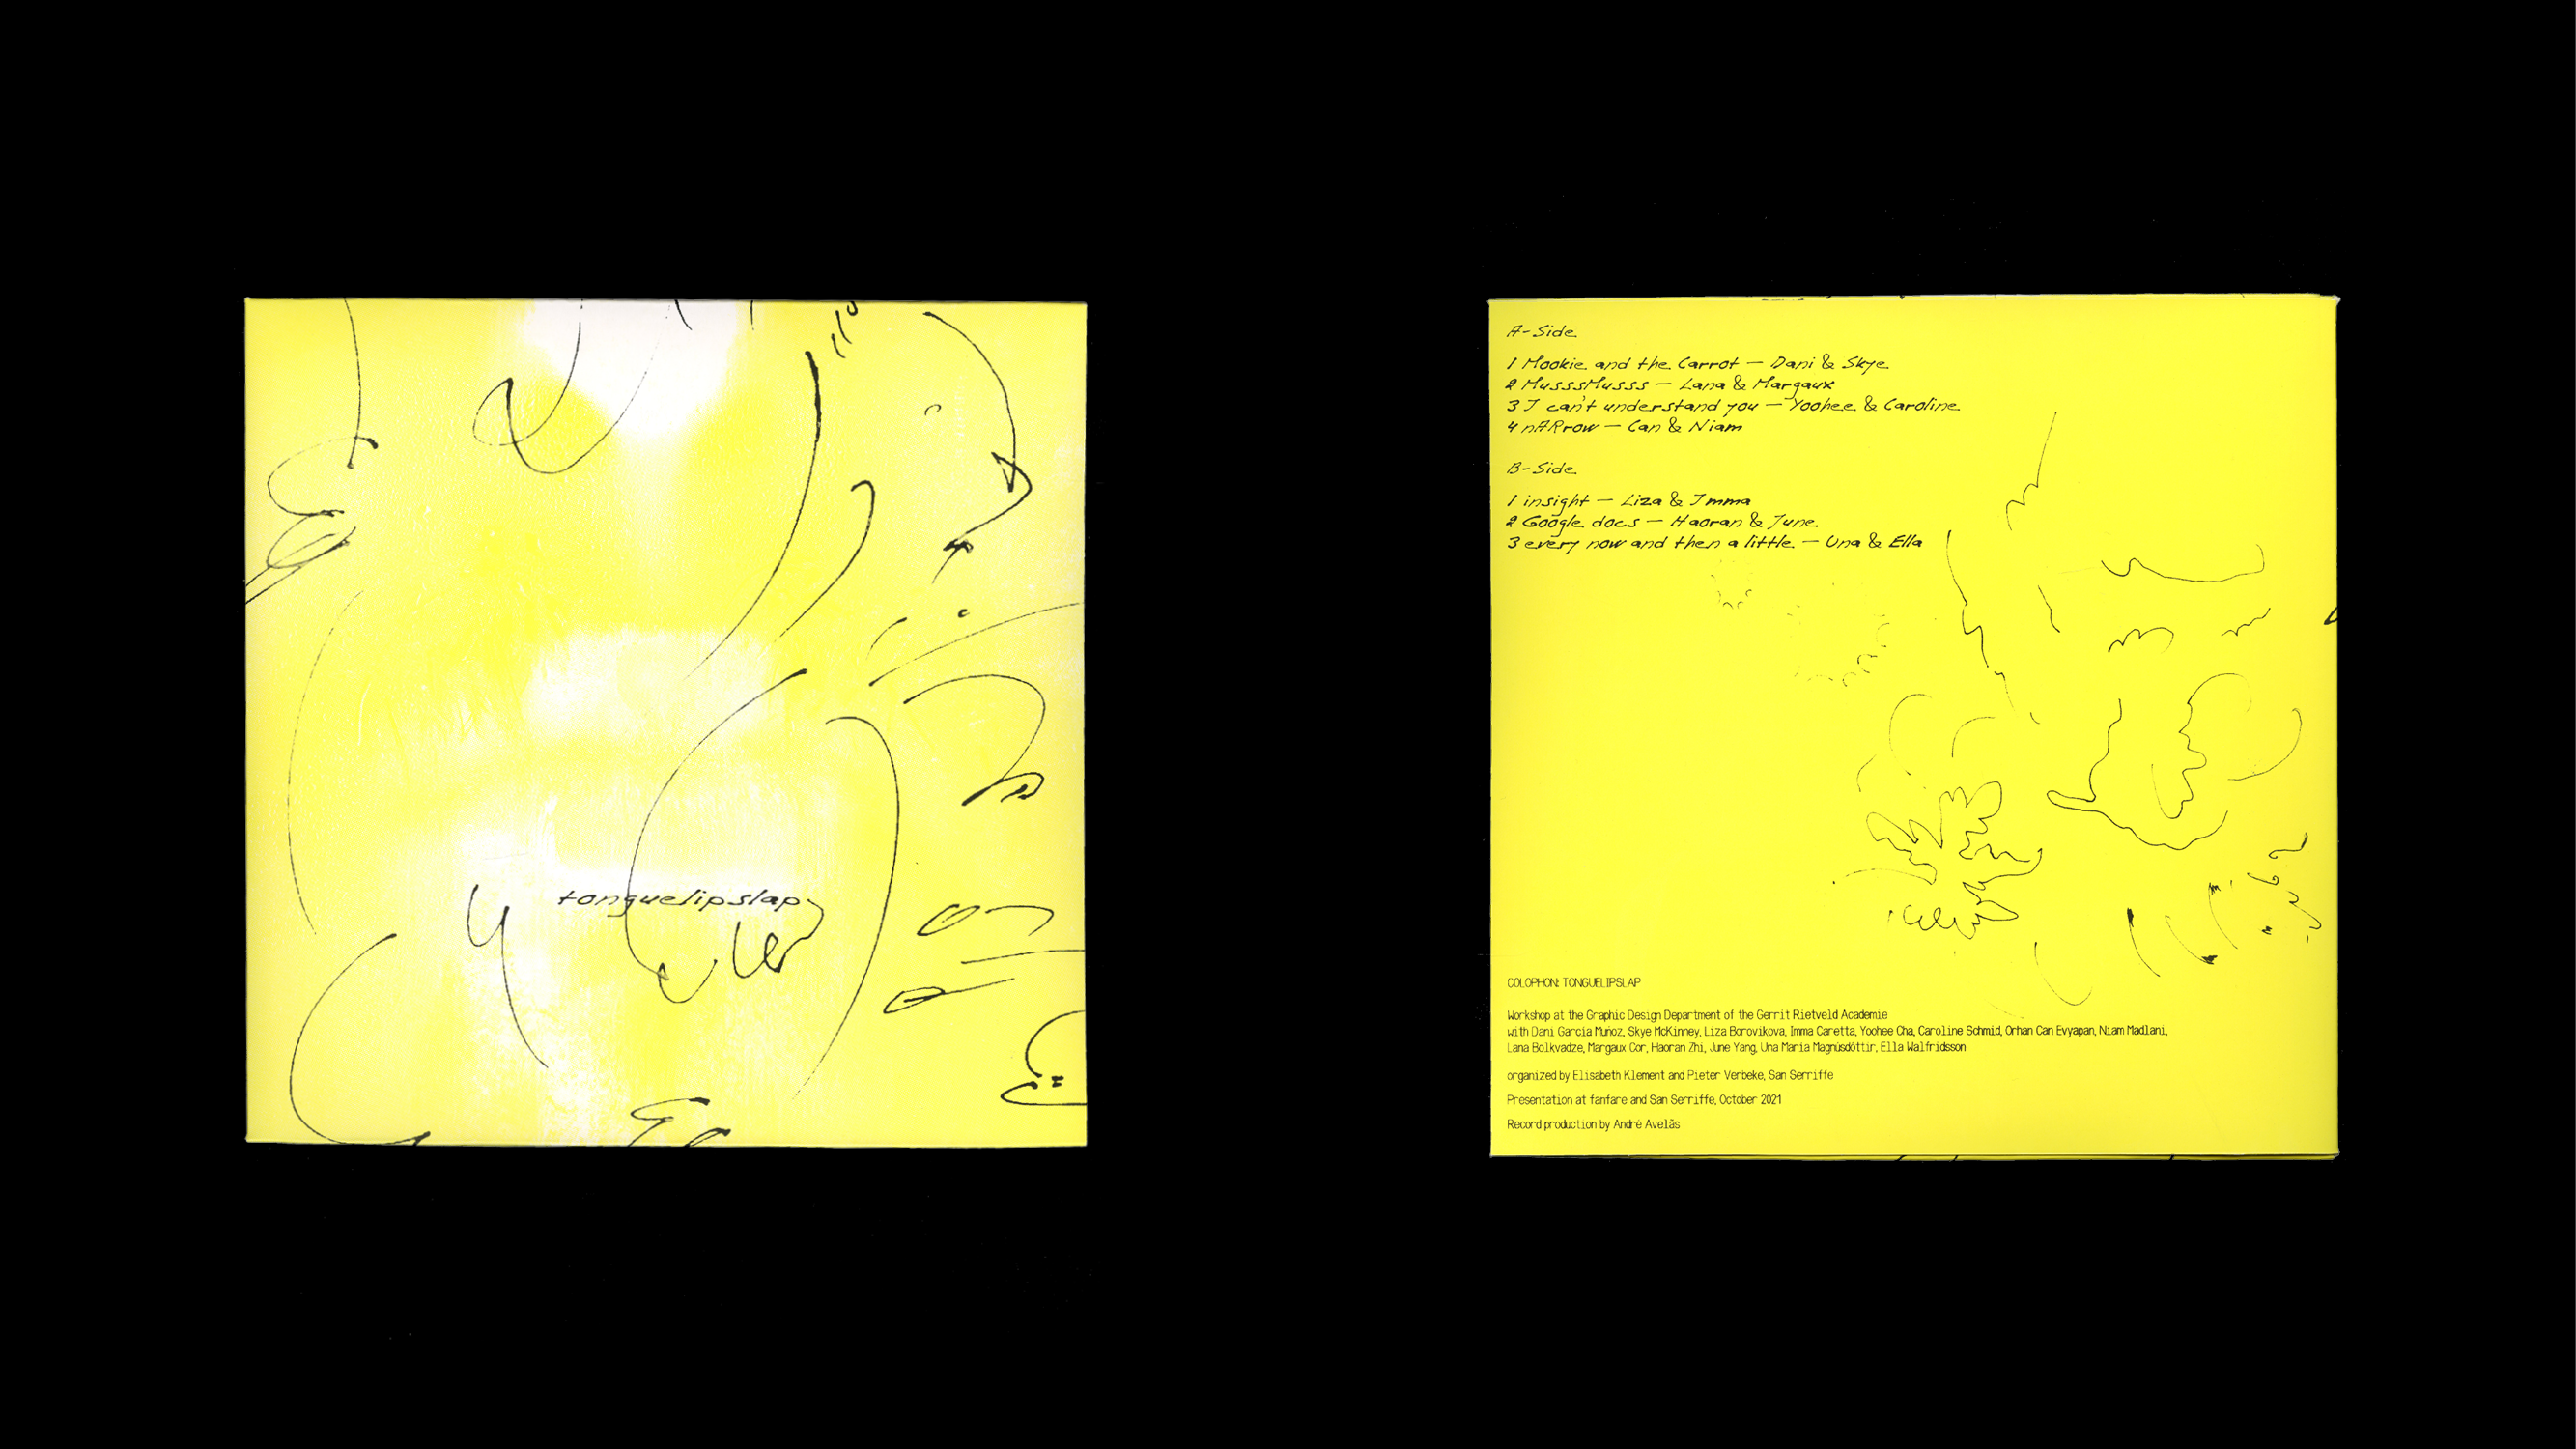 tonguelipslap
A-Side
1 Mookie and the Carrot — Dani & Skye
2 MusssMusss — Lana & Margaux
3 I can't understand you — Yoohee & Caroline
4 nARrow — Can & Niam
B-Side
1 insight — Liza & Imma
2 Google docs — Haoran & June
3 every now and then a little — Una & Ella
COLOPHON: TONGUELIPSLAP
Workshop at the Graphic Design Department of the Gerrit Rietveld Academie
with Dani Garcia Muñoz, Skye McKinney, Liza Borovikova, Imma Caretta, Yoohee Cha, Caroline Schmid, Orhan Can Evyapan, Niam Madlani,
Lana Bolkvadze, Margaux Cor, Haoran Zhi, June Yang, Una María Magnúsdóttir, Ella Walfridsson
organized by Elisabeth Klement and Pieter Verbeke, San Serriffe
Presentation at fanfare and San Serriffe, October 2021
Record production by André Avelãs